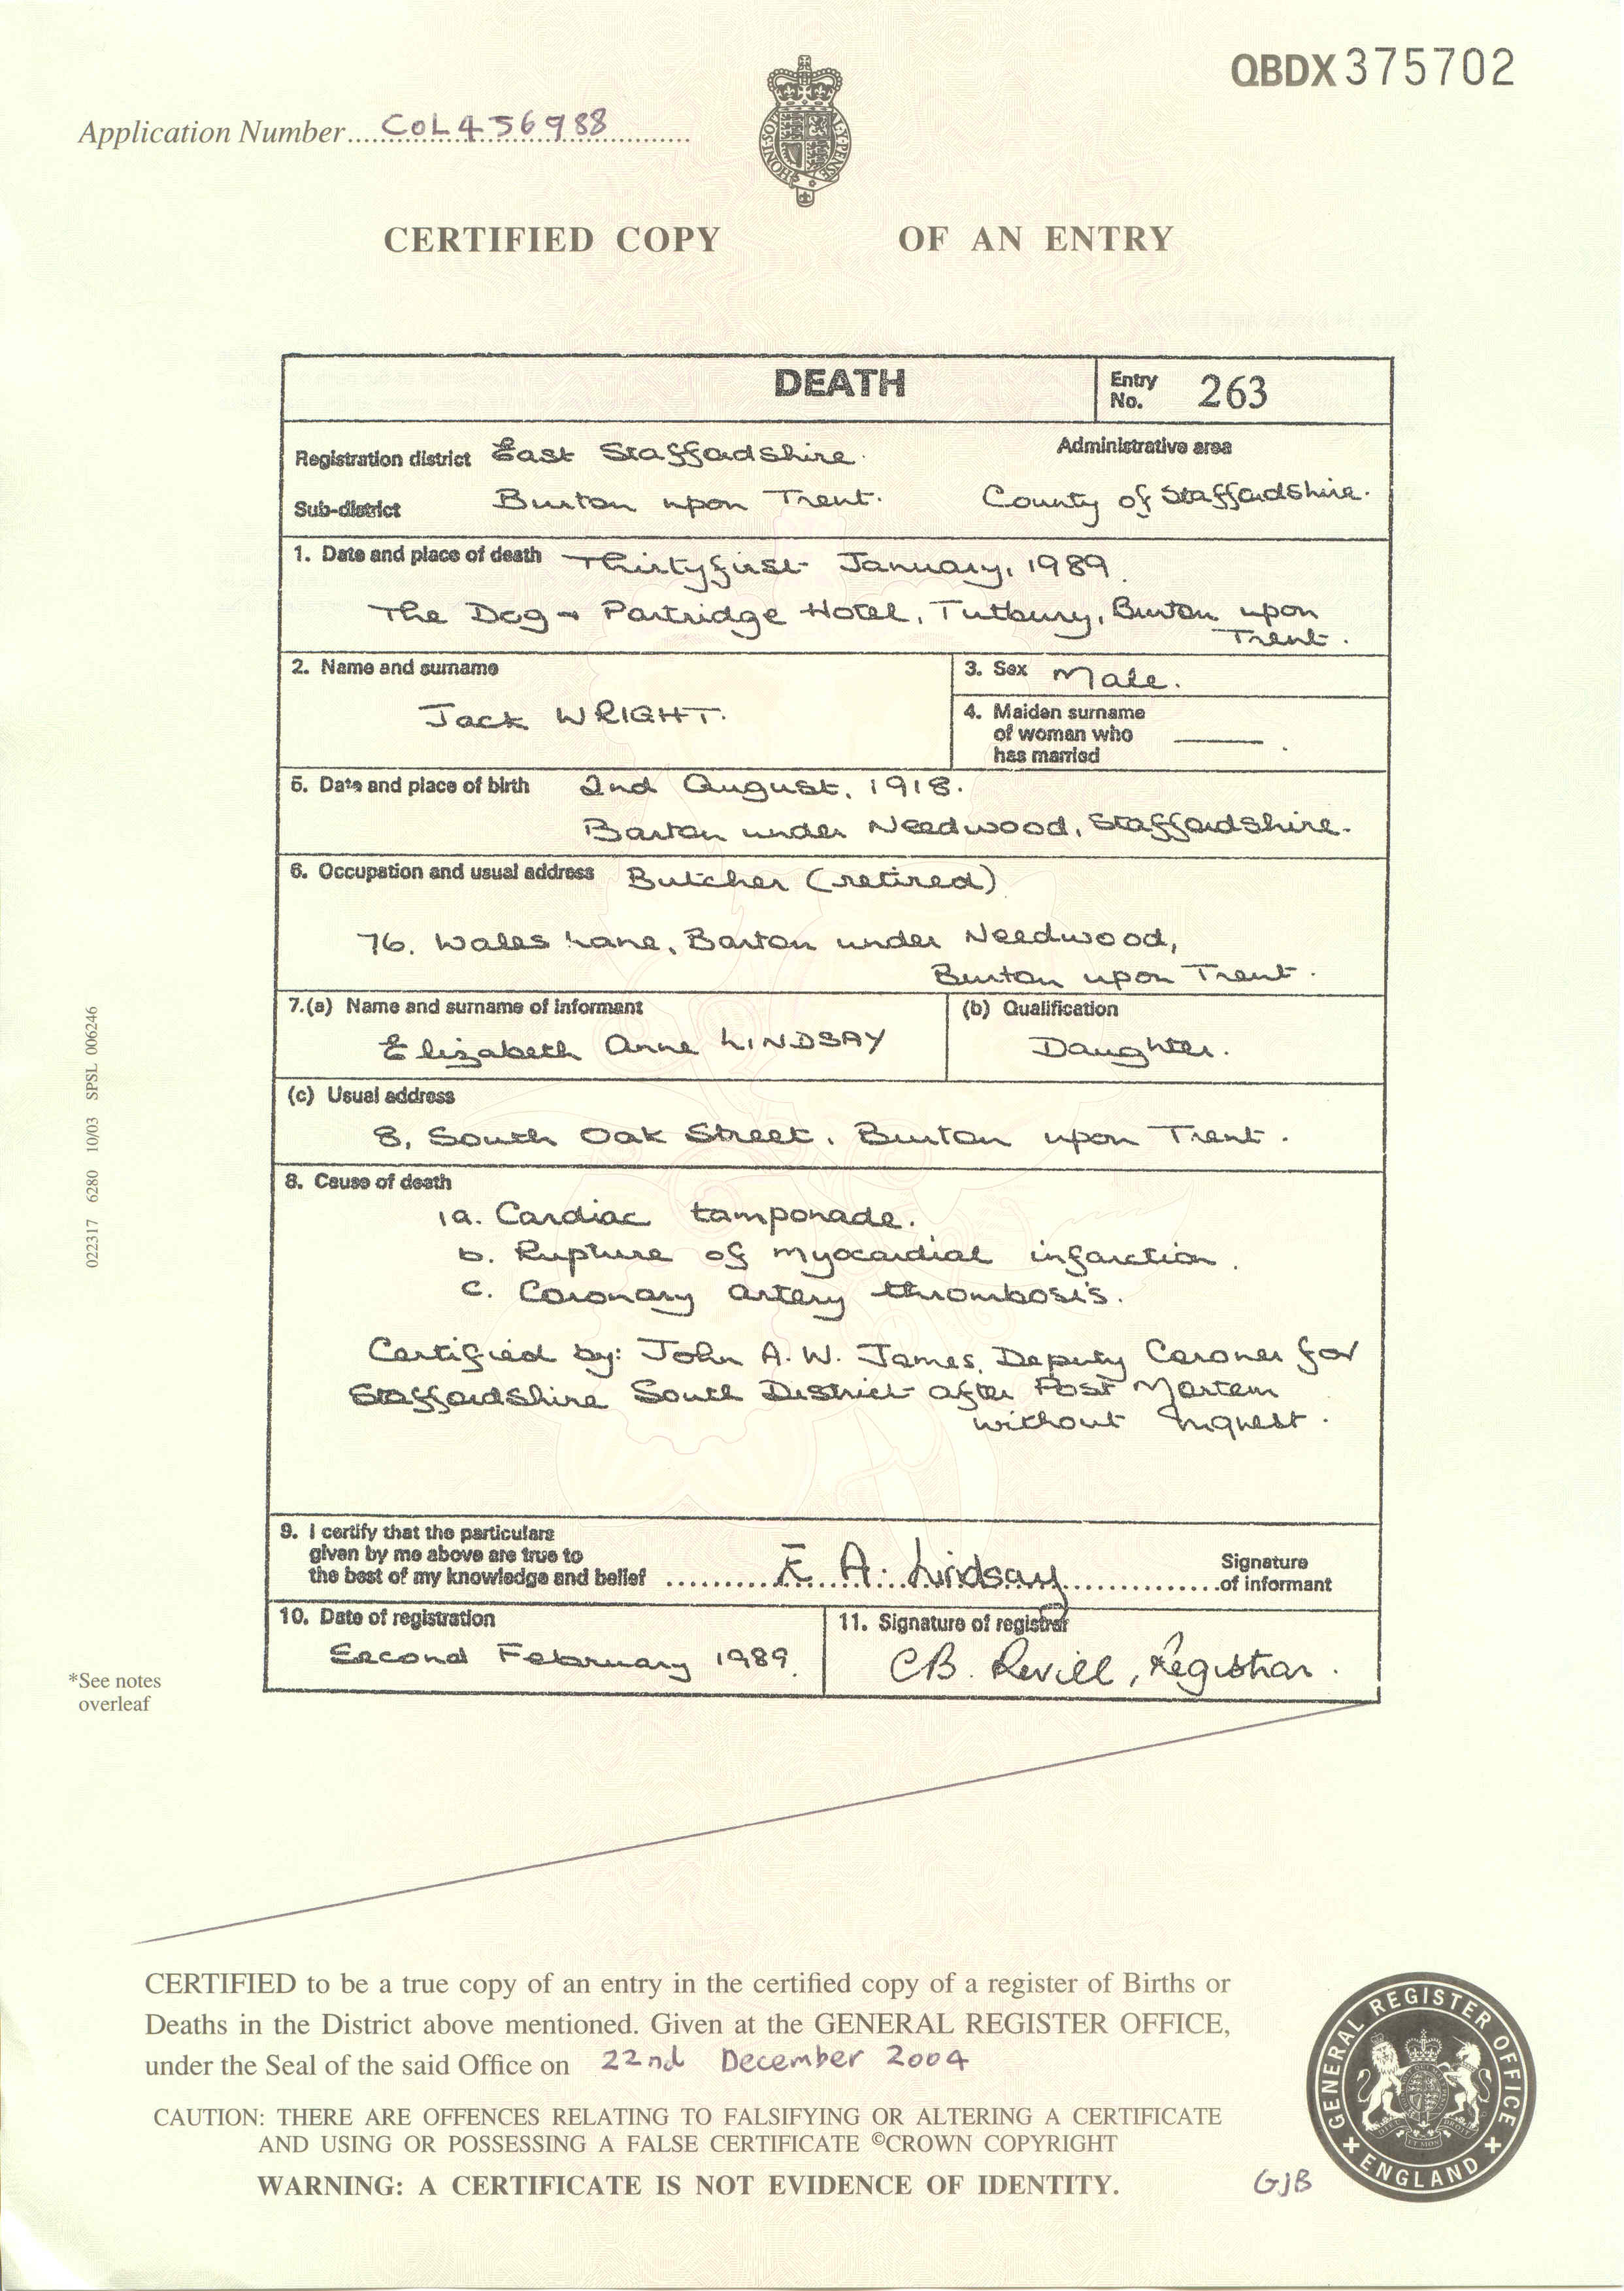 QBDX 375702
Application Number....COL456988
CERTIFIED COPY OF AN ENTRY
DEATH
Entry No. 263
Registration district East Staffordshire.
Administrative area
Sub-district Burton upon Trent. County of Staffordshire.
1. Date and place of death Thirtyfirst January, 1989.
The Dog + Partridge Hotel, Tutbury, Burton upon
Trent.
2. Name and surname
Jack WRIGHT.
3. Sex Male.
4. Maiden surname
of woman who
has married
5. Date and place of birth 2nd August, 1918.
Barton under Needwood, Staffordshire.
6. Occupation and usual address Butcher (retired)
76. Wales Lane, Barton under Needwood,
Burton upon Trent.
7.(a) Name and surname of informant
Elizabeth Anne LINDSAY
(b) Qualification
Daughter.
(c) Usual address
8, South Oak Street, Burton upon Trent.
8. Cause of death
1a. Cardiac tamponade.
b. Rupture of myocardial infarction.
c. Coronary artery thrombosis.
Certified by: John A. W. James, Deputy Coroner for
Staffordshire South District after Post Mortem
without inquest.
9. I certify that the particulars
given by me above are true to
the best of my knowledge and belief E A. Lindsay Signature
of informant
10. Date of registration
Second February 1989.
11. Signature of registrar
CB. Revill, Registrar.
022317 6280 10/03 SPSL 006246
*See notes
overleaf
CERTIFIED to be a true copy of an entry in the certified copy of a register of Births or
Deaths in the District above mentioned. Given at the GENERAL REGISTER OFFICE,
under the Seal of the said Office on 22nd December 2004
CAUTION: THERE ARE OFFENCES RELATING TO FALSIFYING OR ALTERING A CERTIFICATE
AND USING OR POSSESSING A FALSE CERTIFICATE ©CROWN COPYRIGHT
WARNING: A CERTIFICATE IS NOT EVIDENCE OF IDENTITY.
GJB
GENERAL REGISTER OFFICE
ENGLAND